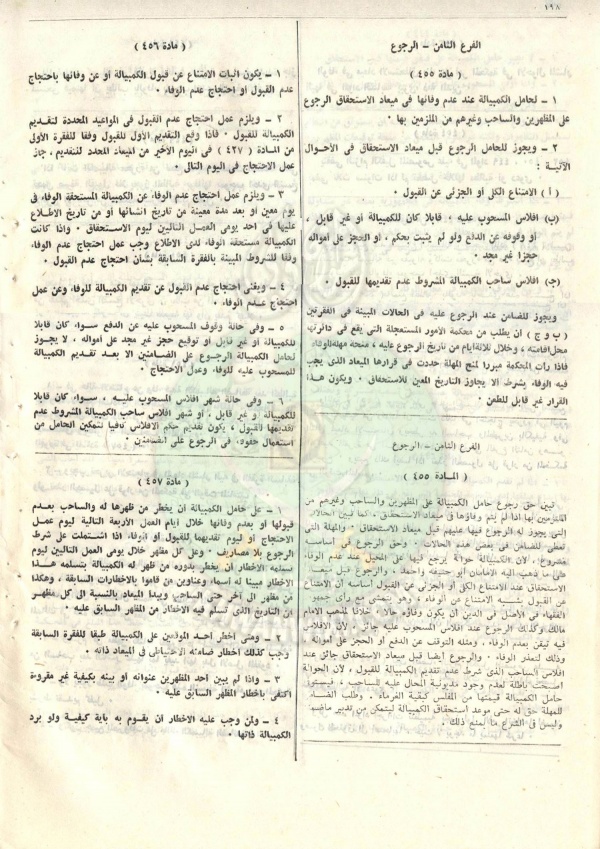 ١٩٨
الفرع الثامن - الرجوع
( مادة ٤٥٥ )
١ - لحامل الكمبيالة عند عدم وفائها فى ميعاد الاستحقاق الرجوع
على المظهرين والساحب وغيرهم من الملزمين بها ٠
٢ - ويجوز للحامل الرجوع قبل ميعاد الاستحقاق فى الأحوال
الآتيــة :
( أ ) الامتناع الكلى أو الجزئى عن القبول ٠
(ب) افلاس المسحوب عليه ٠ قابلا كان للكمبيالة أو غير قابل ،
أو وقوفه عن الدفع ولو لم يثبت بحكم ، أو الحجز على أمواله
حجزا غير مجد ٠
(جـ) افلاس صاحب الكمبيالة المشروط عدم تقديمها للقبول ٠
ويجوز للضامن عند الرجوع عليه فى الحالات المبينة فى الفقرتين
( ب و ج ) ان يطلب من محكمة الأمور المستعجلة التى يقع فى دائرتها
محل اقامته ، وخلال ثلاثة أيام من تاريخ الرجوع عليه ، منحه مهلة للوفاء
فاذا رأت المحكمة مبررا لمنح المهلة حددت فى قرارها الميعاد الذى يجب
فيه الوفاء بشرط ألا يجاوز التاريخ المعين للاستحقاق ٠ ويكون هذا
القرار غير قابل للطعن ٠
الفرع الثامن - الرجوع
( المـادة ٤٥٥ )
تبين حق رجوع حامل الكمبيالة على المظهرين والساحب وغيرهم من
الملتزمين بها اذا لم يتم وفاؤها فى ميعاد الاستحقاق ، كما تبين الحالات
التى يجوز له الرجوع فيها عليهم قبل ميعاد الاستحقاق ٠ والمهلة التى
تعطى للضامن فى بعض هذه الحالات ٠ وحق الرجوع فى أساسه
مشروع ، لأن الكمبيالة حوالة يرجع فيها على المحيل عند عدم الوفاء
على ما ذهب اليه الامامان أبو حنيفة وأحمد ، والرجوع قبل ميعاد
الاستحقاق عند الامتناع الكلى أو الجزئى عن القبول أساسه أن الامتناع
عن القبول يشبه الامتناع عن الوفاء ، وهو ينبنى مع رأى جمهور
الفقهاء فى الأصل فى الدين أن يكون وفاؤه حالا ، خلافا لمذهب الامام
مالك وكذلك الرجوع عند افلاس المسحوب عليه جائز ، لأن الافلاس
فيه تيقن بعدم الوفاء ، ومثله التوقف عن الدفع أو الحجز على أمواله ٠
وذلك لتعذر الوفاء ٠ والرجوع أيضا قبل ميعاد الاستحقاق جائز عند
افلاس الساحب الذى شرط عدم تقديم الكمبيالة للقبول ، لأن الحوالة
أصبحت باطلة لعدم وجود مديونية المحال عليه للساحب ، فيستوفى
حامل الكمبيالة قيمتها من المفلس كبقية الغرماء ٠ وطلب الضامن
للمهلة حق له حتى موعد استحقاق الكمبيالة ليتمكن من تدبير
وليس فى الشرع ما يمنع ذلك ٠
( مادة ٤٥٦ )
١ - يكون اثبات الامتناع عن قبول الكمبيالة أو عن وفائها باحتجاج
عدم القبول أو احتجاج عدم الوفاء ٠
٢ - ويلزم عمل احتجاج عدم القبول فى المواعيد المحددة لتقديم
الكمبيالة للقبول ٠ فاذا وقع التقديم الأول للقبول وفقا للفقرة الأولى
من المادة ( ٤٢٧ ) فى اليوم الأخير من الميعاد المحدد للتقديم ، جاز
عمل الاحتجاج فى اليوم التالى ٠
٣ - ويلزم عمل احتجاج عدم الوفاء عن الكمبيالة المستحقة الوفاء فى
يوم معين أو بعد مدة معينة من تاريخ انشائها أو من تاريخ الاطلاع
عليها فى أحد يومى العمل التاليين ليوم الاستحقاق ٠ واذا كانت
الكمبيالة مستحقة الوفاء لدى الاطلاع وجب عمل احتجاج عدم الوفاء
وفقا للشروط المبينة بالفقرة السابقة بشأن احتجاج عدم القبول ٠
٤ - ويغنى احتجاج عدم القبول عن تقديم الكمبيالة للوفاء وعن عمل
احتجاج عدم الوفاء ٠
٥ - وفى حالة وقوف المسحوب عليه عن الدفع سـواء كان قابلا
للكمبيالة أو غير قابل أو توقيع حجز غير مجد على أمواله ، لا يجوز
لحامل الكمبيالة الرجوع على الضامنين الا بعد تقديم الكمبيالة
للمسحوب عليه للوفاء وعمل الاحتجاج ٠
٦ - وفى حالة شهر افلاس المسحوب عليـه ، سواء كان قابلا
للكمبيالة أو غير قابل ، أو شهر افلاس ساحب الكمبيالة المشروط عدم
تقديمها للقبول ، يكون تقديم حكم الافلاس كافيا لتمكين الحامل من
استعمال حقوقه فى الرجوع على الضامنين ٠
( مادة ٤٥٧ )
١ - على حامل الكمبيالة أن يخطر من ظهرها له والساحب بعدم
قبولها أو بعدم وفائها خلال أيام العمل الأربعة التالية ليوم عمل
الاحتجاج أو ليوم تقديمها للقبول أو الوفاء اذا اشتملت على شرط
الرجوع بلا مصاريف ٠ وعلى كل مظهر خلال يومى العمل التاليين ليوم
تسلمه الاخطار أن يخطر بدوره من ظهر له الكمبيالة بتسلمه هذا
الاخطار مبينا له أسماء وعناوين من قاموا بالاخطارات السابقة ، وهكذا
من مظهر الى آخر حتى الساحب ويبدأ الميعاد بالنسبة الى كل مظهر
من التاريخ الذى تسلم فيه الاخطار من المظهر السابق عليه ٠
٢ - ومتى أخطر أحد الموقعين على الكمبيالة طبقا للفقرة السابقة
وجب كذلك اخطار ضامنه الاحتياطى فى الميعاد ذاته ٠
٣ - واذا لم يبين أحد المظهرين عنوانه أو بينه بكيفية غير مقروءة
اكتفى باخطار المظهر السابق عليه ٠
٤ - ولمن وجب عليه الاخطار أن يقوم به بأية كيفية ولو برد
الكمبيالة ذاتها ٠